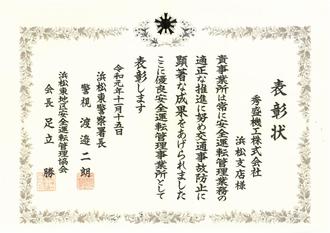 表彰状
秀盛機工株式会社
浜松支店様
貴事業所は常に安全運転管理業務の
適正な推進に努め交通事故防止に
顕著な成果をあげられました
ここに優良安全運転管理事業所として
表彰します
令和元年十一月十五日
浜松東警察署長
警視 渡邉二朗
浜松東地区安全運転管理協会
会長 足立 勝